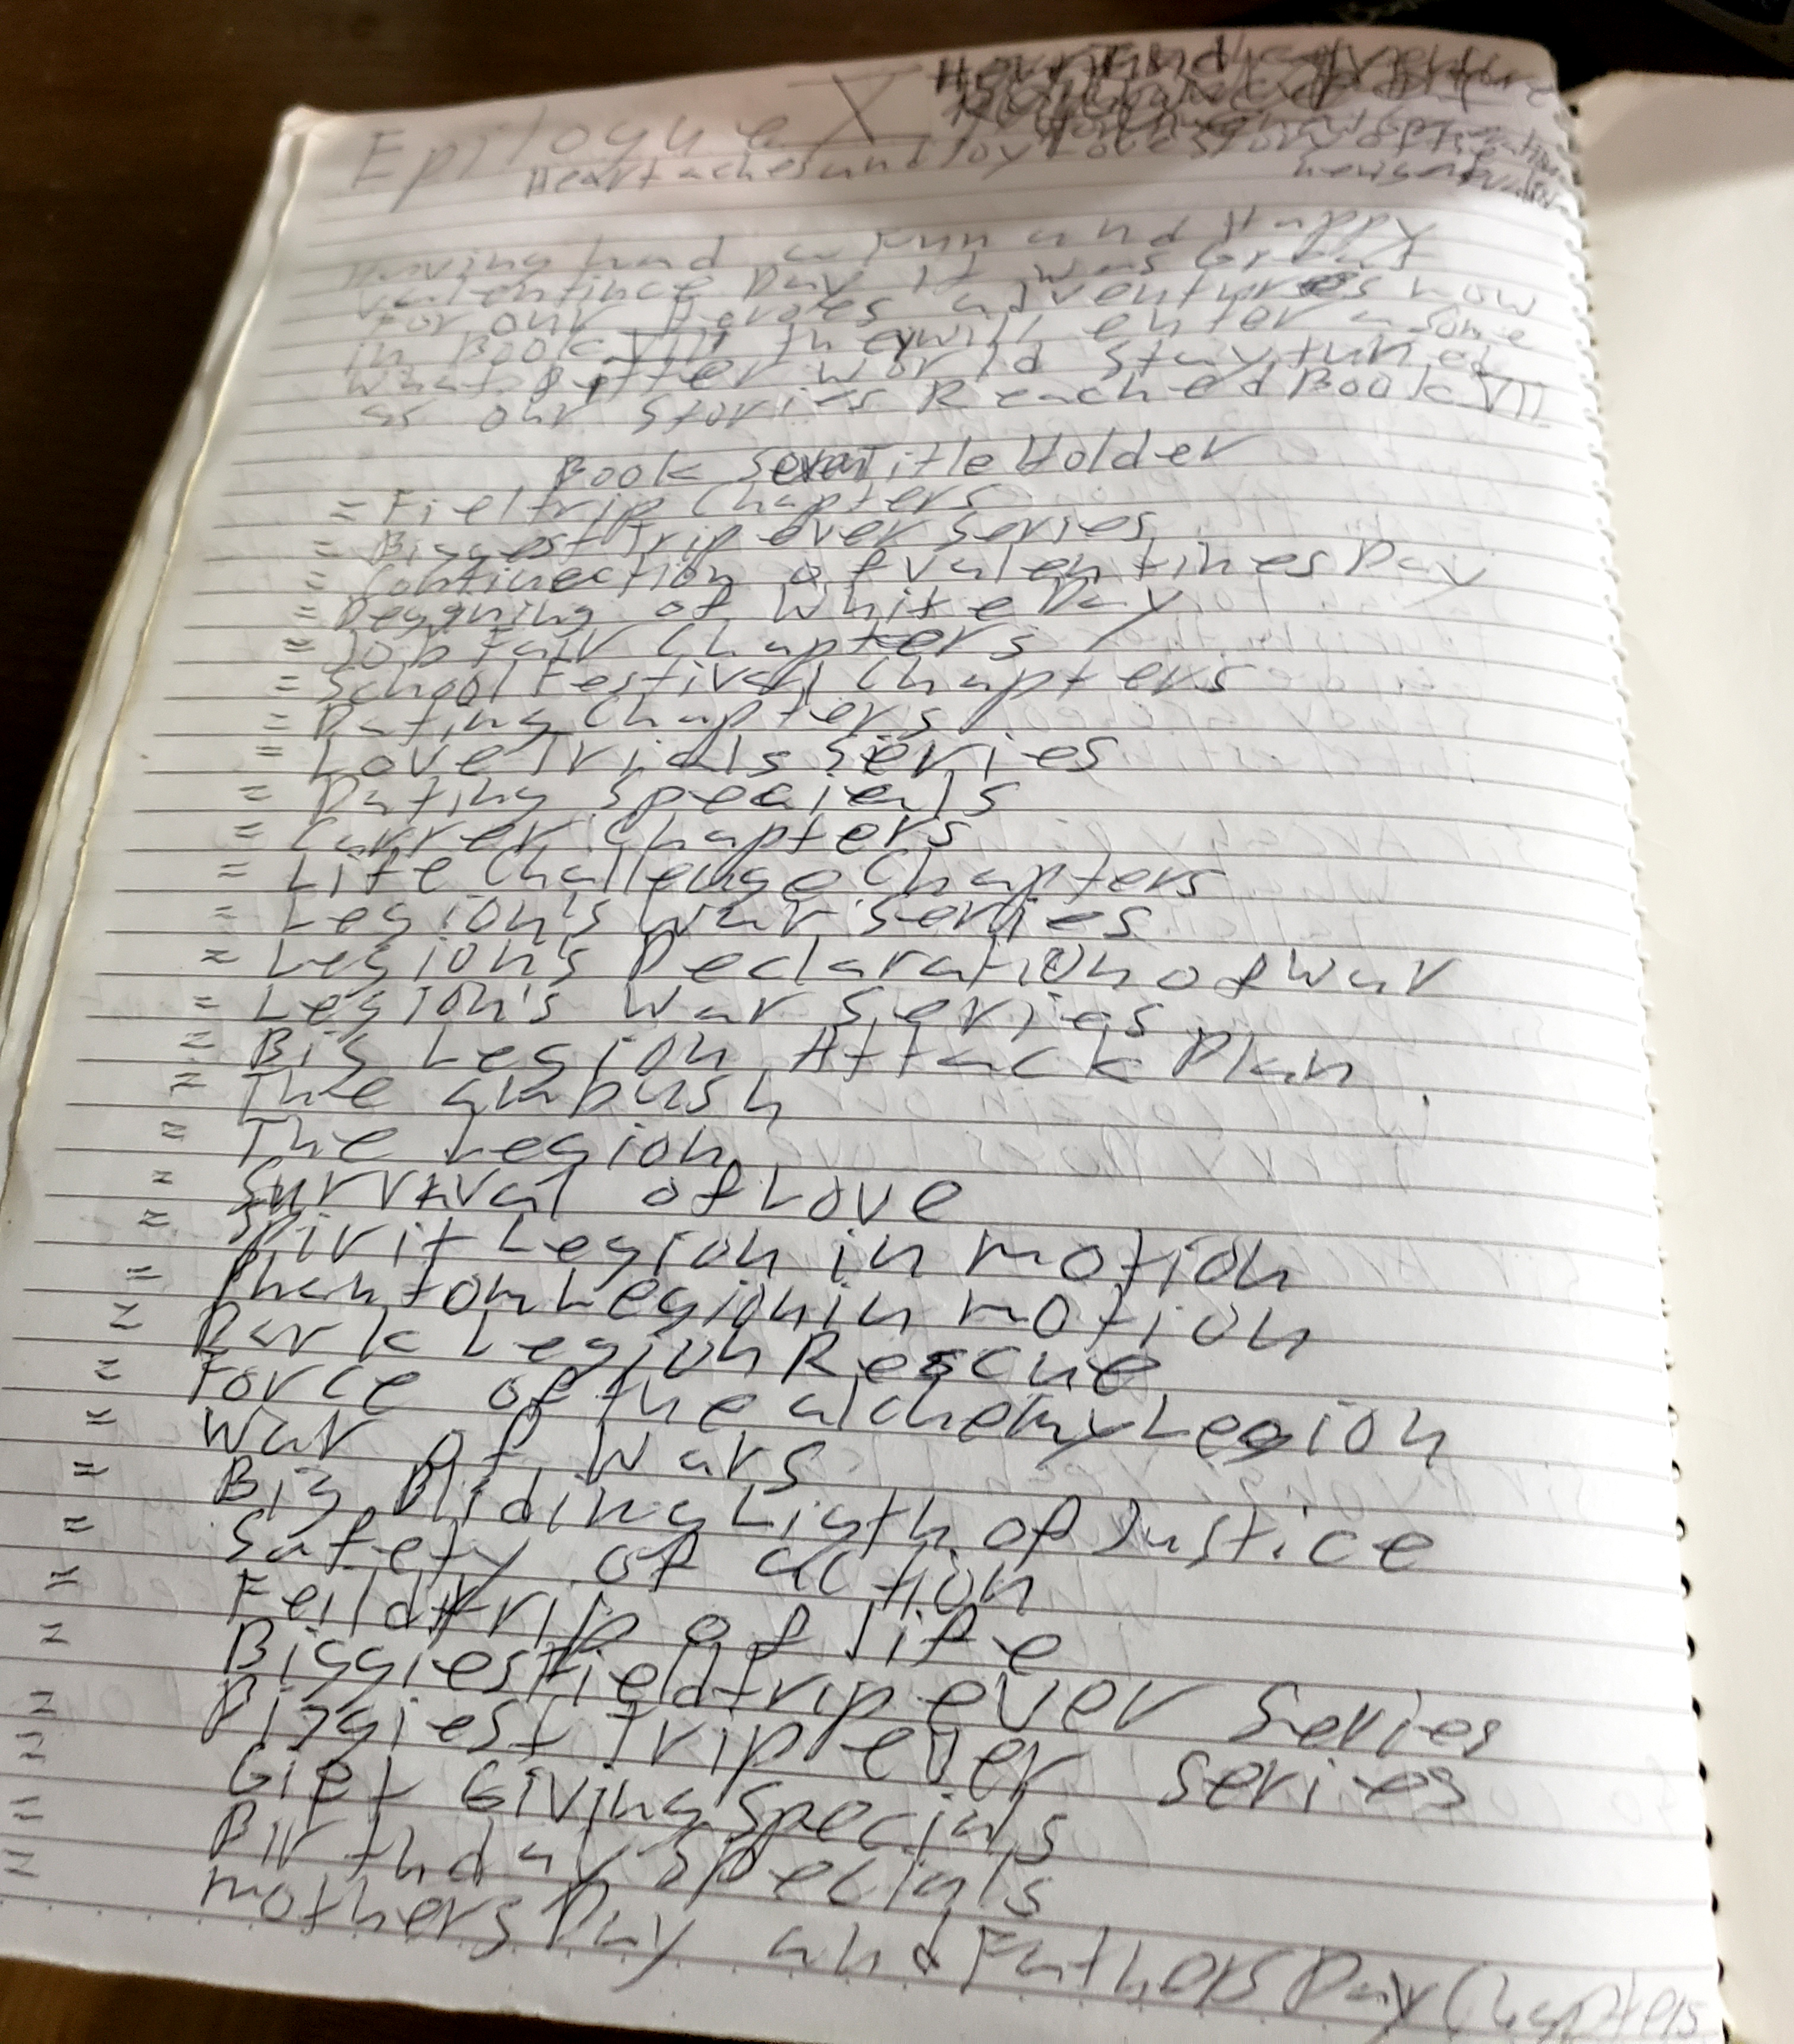 Epilogue X
Heartaches and Joy Love Story of the
Having had a Fun and Happy
Valentince Day It was Great
For our Heroes adventures now
in Book VII they will enter a some
what Bitter world stay tuned
as our stories Reached Book VII
Book Seven Title Holder
= Fieltrip Chapters
= Biggest Trip ever series
= Continection of valentines Day
= Beggning of White Day
= Job Fair Chapters
= School Festival Chapters
= Dating Chapters
= Love Trials Series
= Dating Specials
= Carrer Chapters
= Life Challenge Chapters
= Legion's War series
= Legion's Declaration of War
= Legion's War Series
= Big Legion Attack Plan
= The ambush
= The Legion
= Survival of Love
= Spirit Legion in motion
= Phantom Legion in motion
= Dark Legion Rescue
= Force of the alchemy Legion
= War of Wars
= Big Bliding Ligth of Justice
= Safety of action
= Feildtrip of life
= Biggiest Fieldtrip ever Series
= Biggiest Trip ever series
= Gift Giving Specials
= Birthday Specials
= mothers Day and Fathers Day Chapters